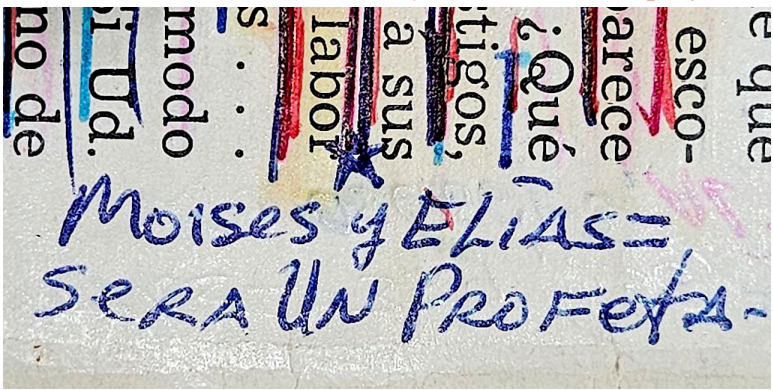 e que
esco-
arece
¿Qué
tigos,
a sus
labor
s . . .
modo
Si Ud.
no de
Moises y ELÍAS=
SERA UN PROFETA-